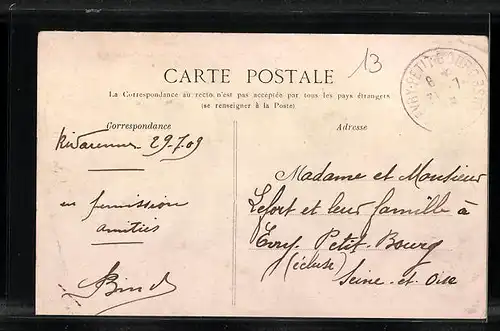 13
CARTE POSTALE
La Correspondance au recto n'est pas acceptée par tous les pays étrangers
(se renseigner à la Poste)
Correspondance
Adresse
EVRY-PETIT-BOURG
Rivarennes 29-7-09
en permission
amitiés
Madame et Monsieur
Lefort et leur famille à
Evry Petit-Bourg
(écluse)
Seine-et-Oise